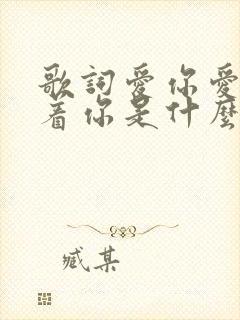 歌詞愛你愛
着你是什麼
臧某